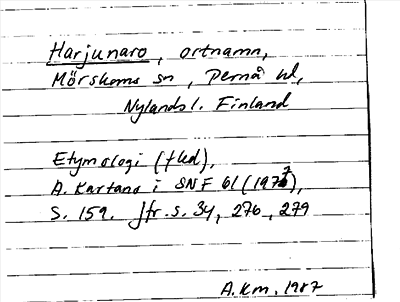 Harjunaro, ortnamn,
Mörskoms sn, Pernå hd,
Nylands l. Finland
Etymologi (fhd),
A. Kartano i SNF 61 (1977),
S. 159. Jfr. s. 34, 276, 279
A.Km. 1987